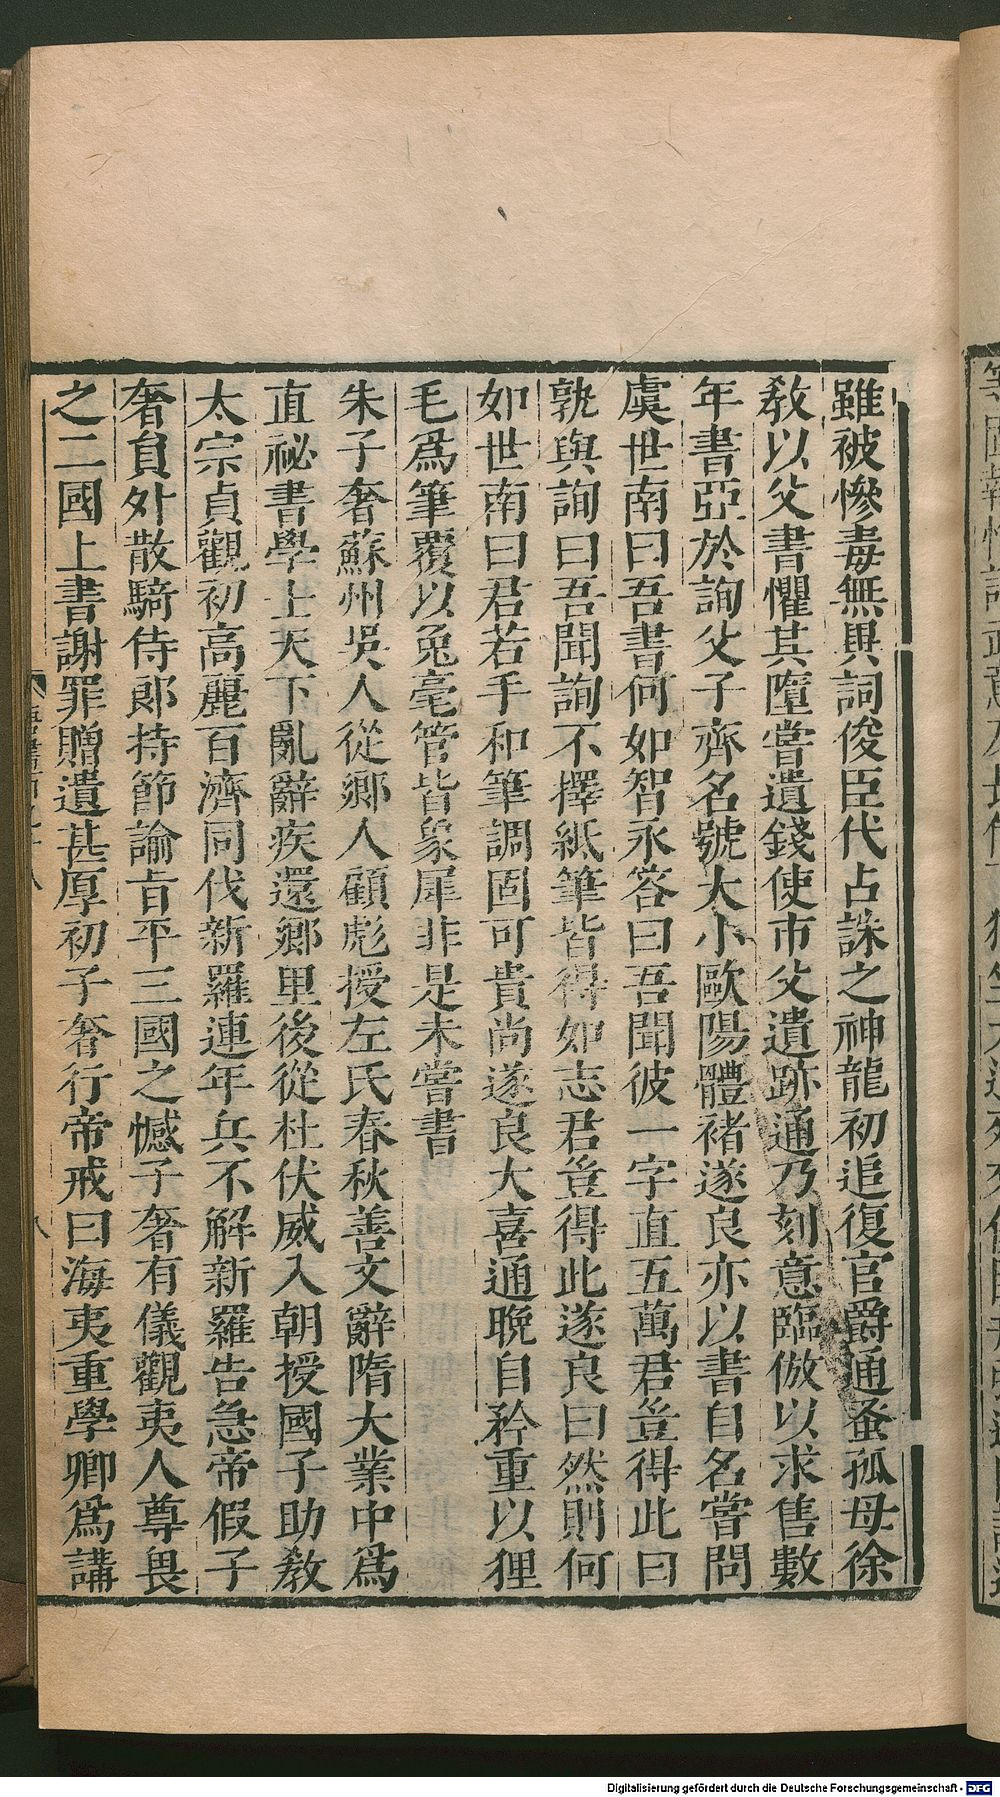 雖被慘毒無異詞俊臣代占誅之神龍初追復官爵通蚤孤母徐
教以父書懼其墮嘗遺錢使市父遺跡通乃刻意臨倣以求售數
年書亞於詢父子齊名號大小歐陽體褚遂良亦以書自名嘗問
虞世南曰吾書何如智永答曰吾聞彼一字直五萬君豈得此曰
孰與詢曰吾聞詢不擇紙筆皆得如志君豈得此遂良曰然則何
如世南曰君若手和筆調固可貴尚遂良大喜通晚自矜重以狸
毛爲筆覆以兔毫管皆象犀非是未嘗書
朱子奢蘇州吳人從鄉人顧彪授左氏春秋善文辭隋大業中爲
直祕書學士天下亂辭疾還鄉里後從杜伏威入朝授國子助教
太宗貞觀初高麗百濟同伐新羅連年兵不解新羅告急帝假子
奢員外散騎侍郎持節諭旨平三國之憾子奢有儀觀夷人尊畏
之二國上書謝罪贈遺甚厚初子奢行帝戒曰海夷重學卿爲講
八
Digitalisierung gefördert durch die Deutsche Forschungsgemeinschaft - DFG